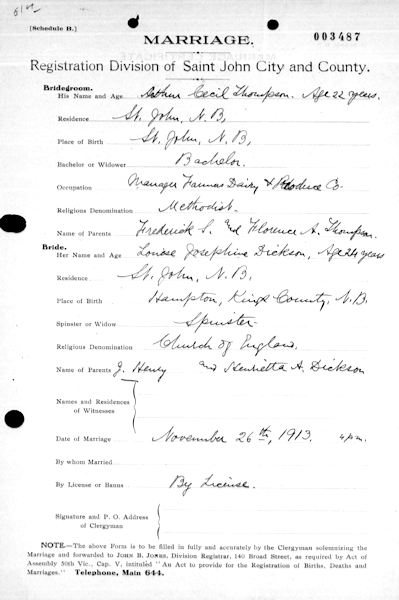 [Schedule B.]
003487
MARRIAGE.
Registration Division of Saint John City and County.
Bridegroom.
His Name and Age Arthur Cecil Thompson. Age 22 years.
Residence St. John, N.B,
Place of Birth St. John, N.B,
Bachelor or Widower Bachelor.
Occupation Manager Farmers Dairy & Produce Co.
Religious Denomination Methodist.
Name of Parents Frederick S. and Florence A. Thompson.
Bride.
Her Name and Age Louise Josephine Dickson, Age 24 years
Residence St. John, N.B,
Place of Birth Hampton, Kings County, N.B.
Spinster or Widow Spinster
Religious Denomination Church of England,
Name of Parents J. Henry and Henrietta A. Dickson
Names and Residences
of Witnesses
Date of Marriage November 26th, 1913. 4 p.m.
By whom Married
By License or Banns By License.
Signature and P. O. Address
of Clergyman
NOTE.—The above Form is to be filled in fully and accurately by the Clergyman solemnizing the
Marriage and forwarded to JOHN B. JONES, Division Registrar, 140 Broad Street, as required by Act of
Assembly 50th Vic., Cap. V, intituled "An Act to provide for the Registration of Births, Deaths
and Marriages." Telephone, Main 644.